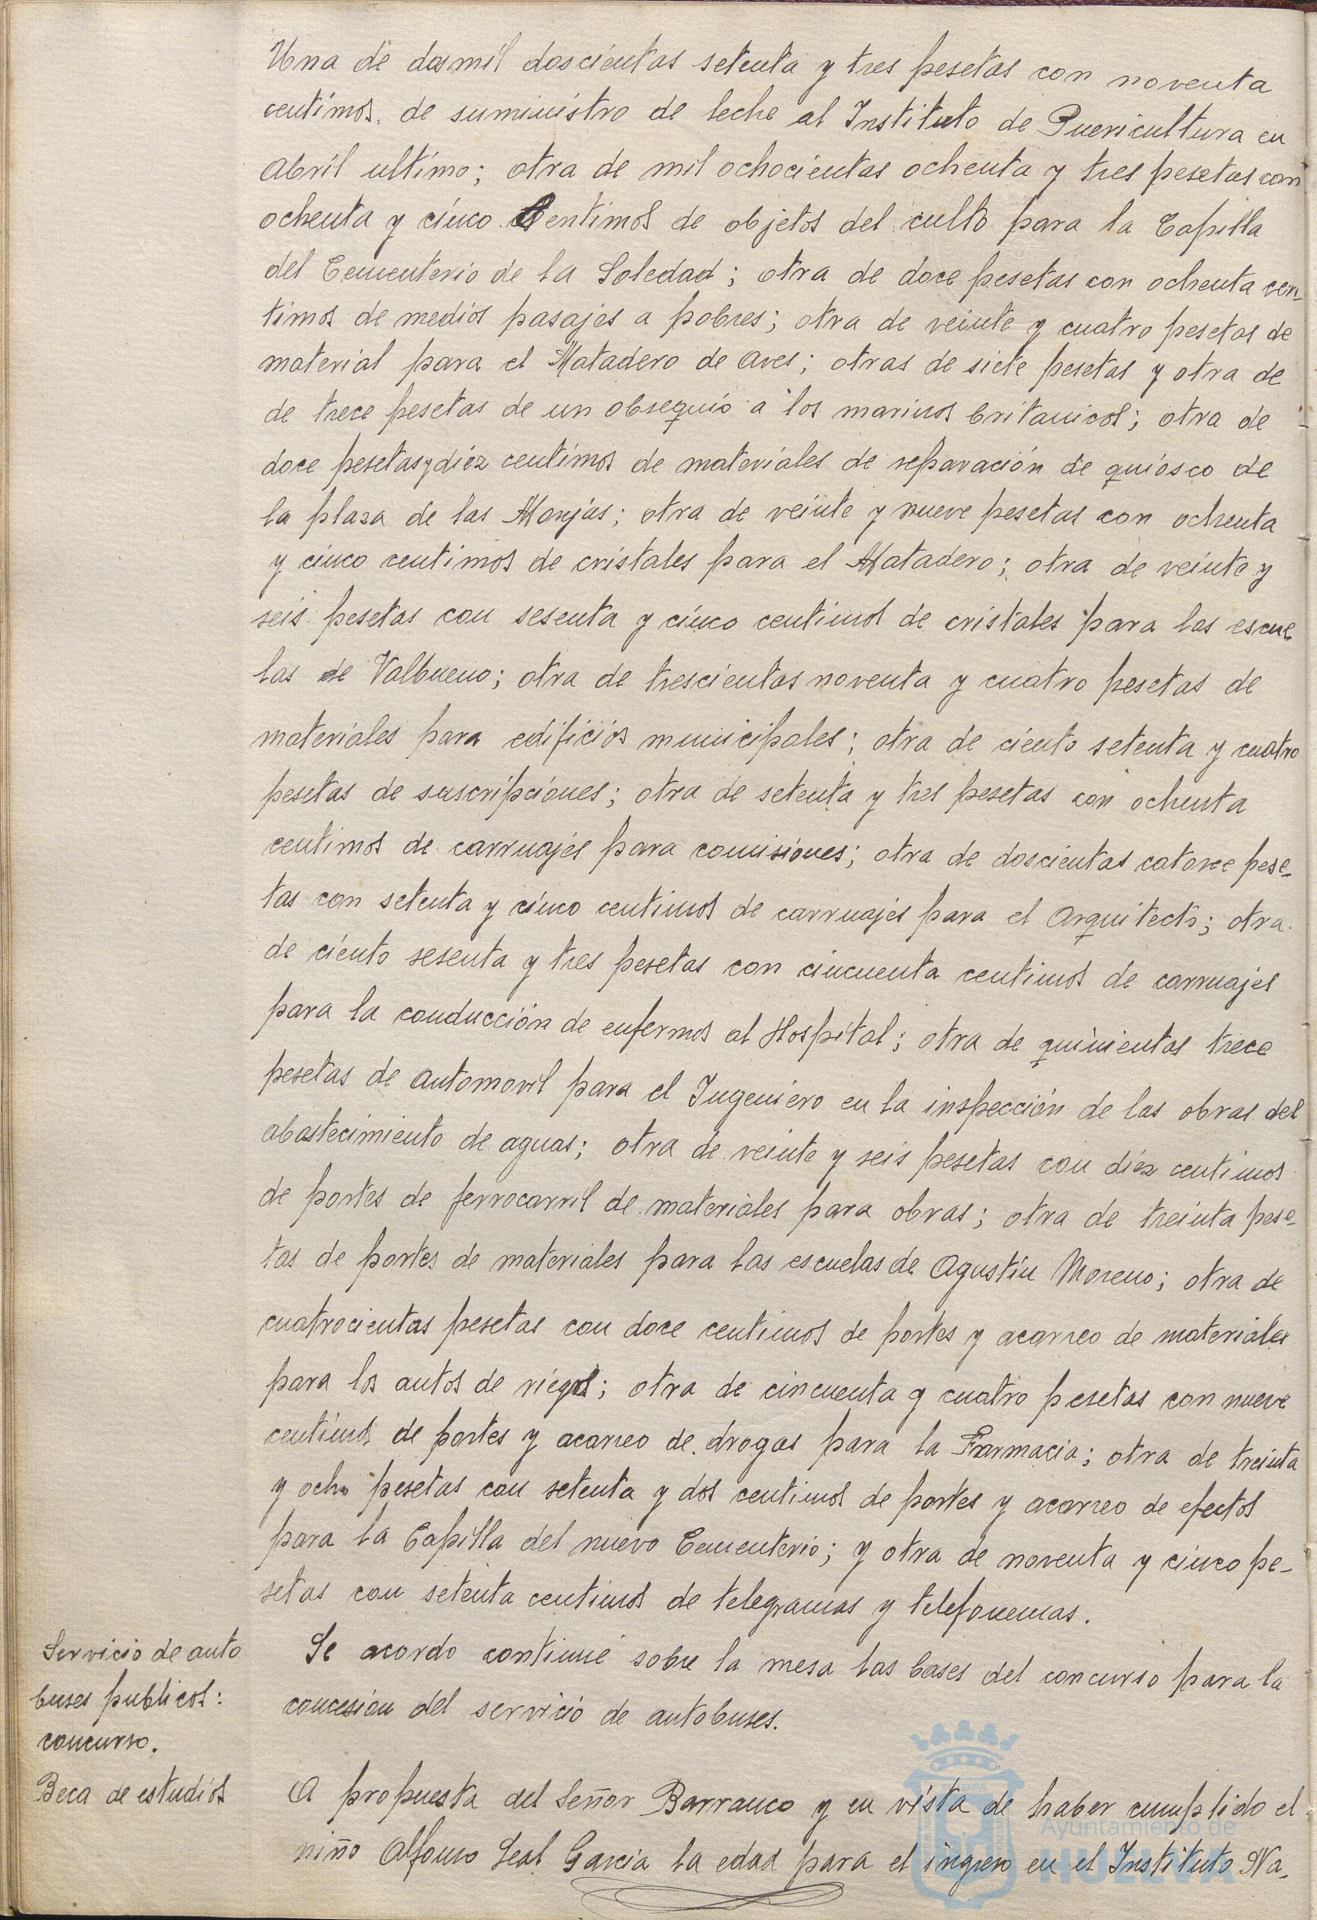 Una de dosmil doscientas setenta y tres pesetas con noventa
centimos. de suministro de leche al Instituto de Puericultura en
Abril ultimo; otra de mil ochocientas ochenta y tres pesetas con
ochenta y cinco centimos de objetos del culto para la Capilla
del Cementerio de la Soledad; otra de doce pesetas con ochenta cen-
timos de medios pasajes a pobres; otra de veinte y cuatro pesetas de
material para el Matadero de aves; otras de siete pesetas y otra de
de trece pesetas de un obsequio a los marinos britanicos; otra de
doce pesetas y diez centimos de materiales de reparación de quiosco de
la plaza de las Monjas; otra de veinte y nueve pesetas con ochenta
y cinco centimos de cristales para el Matadero; otra de veinte y
seis pesetas con sesenta y cinco centimos de cristales para las escue
las de Valbueno; otra de trescientas noventa y cuatro pesetas de
materiales para edificios municipales; otra de ciento setenta y cuatro
pesetas de suscripciones; otra de setenta y tres pesetas con ochenta
centimos de carruajes para comisiones; otra de doscientas catorce pese-
tas con setenta y cinco centimos de carruajes para el Arquitecto; otra
de ciento sesenta y tres pesetas con cincuenta centimos de carruajes
para la conducción de enfermos al Hospital; otra de quinientas trece
pesetas de automovil para el Ingeniero en la inspección de las obras del
abastecimiento de aguas; otra de veinte y seis pesetas con diez centimos
de portes de ferrocarril de materiales para obras; otra de treinta pese-
tas de portes de materiales para las escuelas de Agustin Moreno; otra de
cuatrocientas pesetas con doce centimos de portes y acarreo de materiales
para los autos de riegos; otra de cincuenta y cuatro pesetas con nueve
centimos de portes y acarreo de drogas para la Farmacia; otra de treinta
y ocho pesetas con setenta y dos centimos de portes y acarreo de efectos
para la Capilla del nuevo Cementerio; y otra de noventa y cinco pe-
setas con setenta centimos de telegramas y telefonemas.
Servicio de auto
buses publicos:
concurso.
Se acordo continue sobre la mesa las bases del concurso para la
concesion del servicio de autobuses.
Beca de estudios
A propuesta del Señor Barranco y en vista de haber cumplido el
niño Alfonso Leal Garcia la edad para el ingreso en el Instituto Na-
Ayuntamiento de
HUELVA